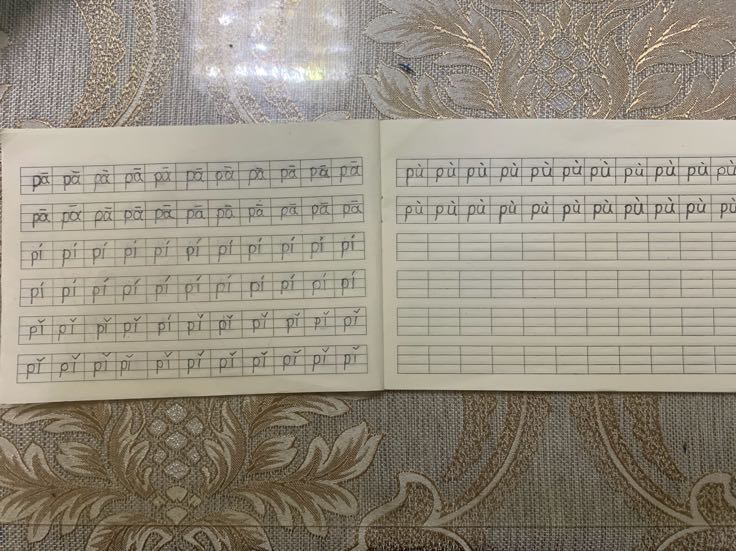 pā pā pā pā pā pā pā pā pā pā pā
pā pā pā pā pā pā pā pā pā pā pā
pí pí pí pí pí pí pí pí pí pí pí
pí pí pí pí pí pí pí pí pí pí pí
pǐ pǐ pǐ pǐ pí pǐ pǐ pǐ pǐ pǐ pǐ
pǐ pǐ pǐ pǐ pǐ pǐ pǐ pǐ pǐ pǐ pǐ
pù pù pù pù pù pù pù pù pù pù pù
pù pù pù pù pù pù pù pù pù pù pù